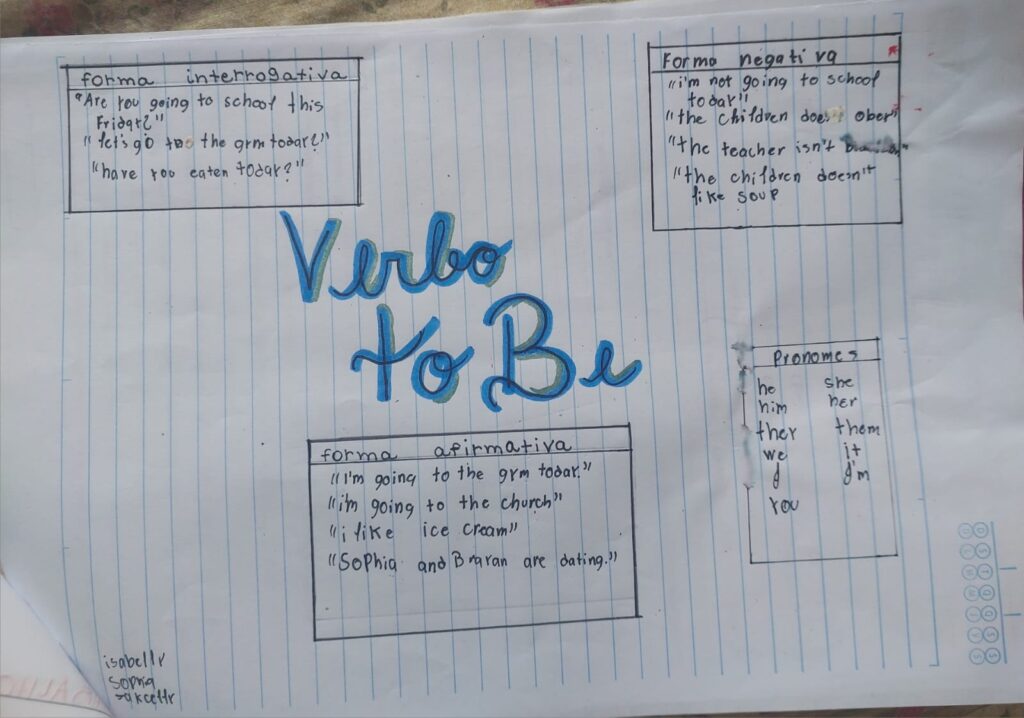 forma interrogativa
"Are you going to school this
Friday?"
"let's go too the gym today?"
"have you eaten today?"
Forma negativa
"i'm not going to school
today"
"the children does't obey"
"the teacher isn't
"the children doesn't
like soup
Verbo
to Be
Pronomes
he she
him her
they them
we it
I I'm
you
forma afirmativa
"I'm going to the gym today."
"i'm going to the church"
"i like ice cream"
"Sophia and Brayan are dating."
isabelly
sophia